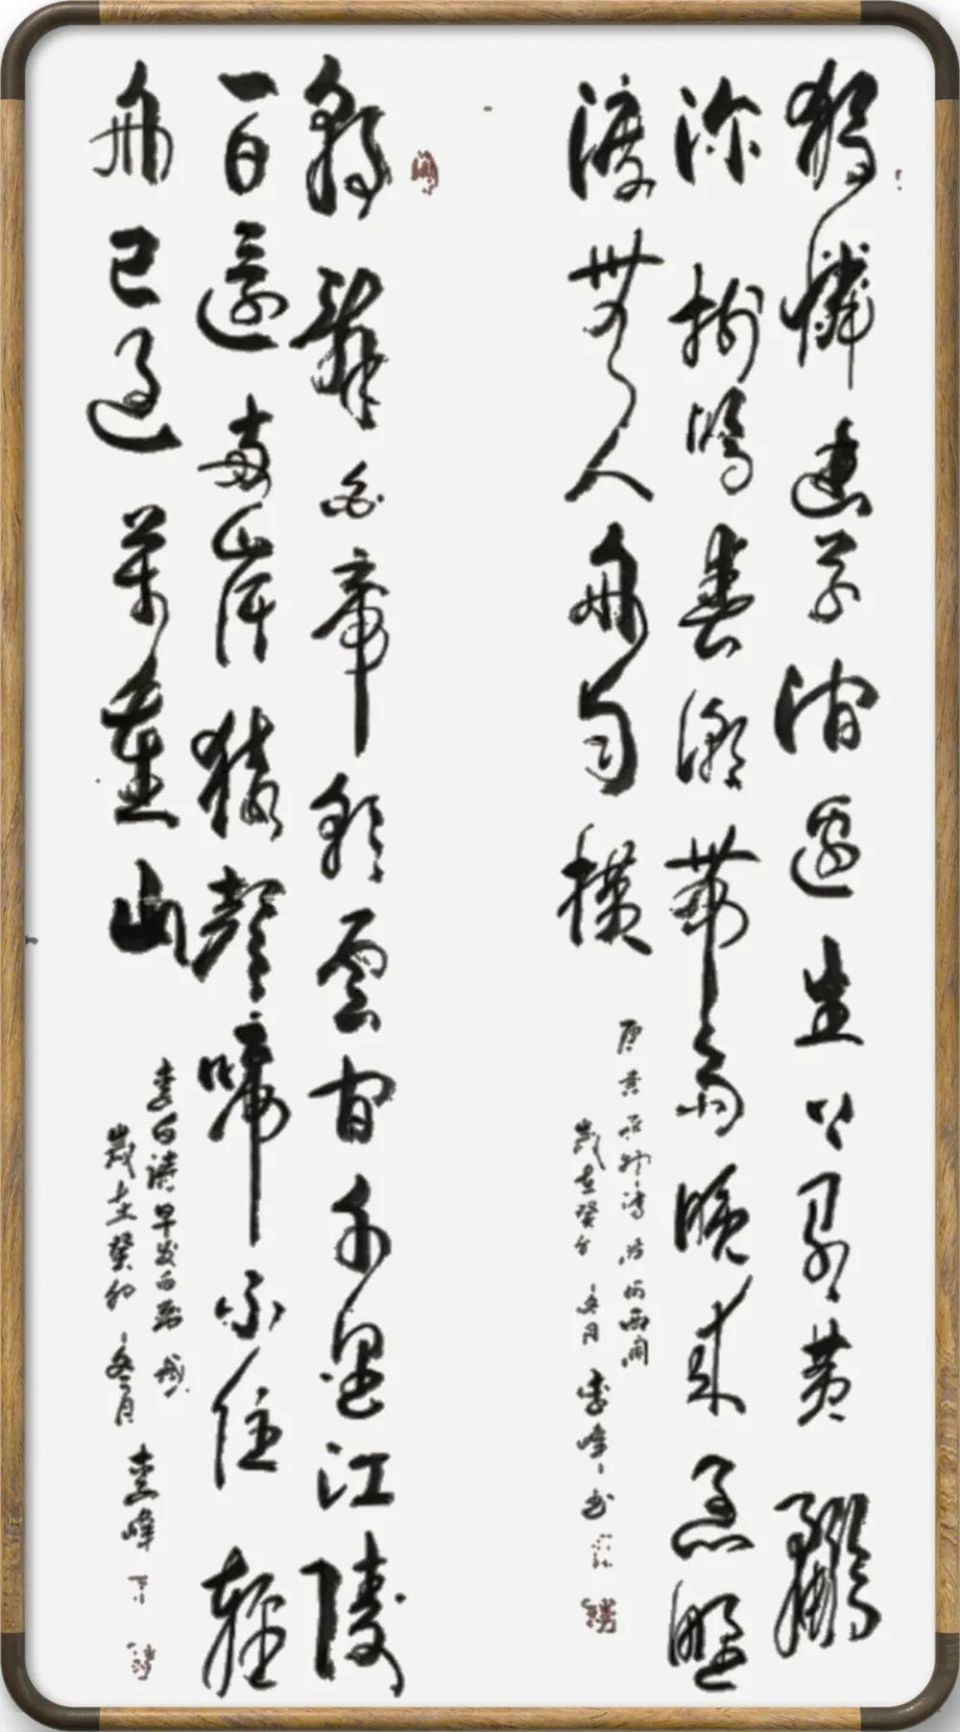 獨憐幽草澗邊生上有黃鸝
深樹鳴春潮帶雨晚來急野
渡無人舟自橫
唐韋應物詩滁州西澗
歲在癸卯冬月李峰書
朝辭白帝彩雲間千里江陵
一日還兩岸猿聲啼不住輕
舟已過萬重山
李白詩早发白帝城
歲在癸卯冬月李峰